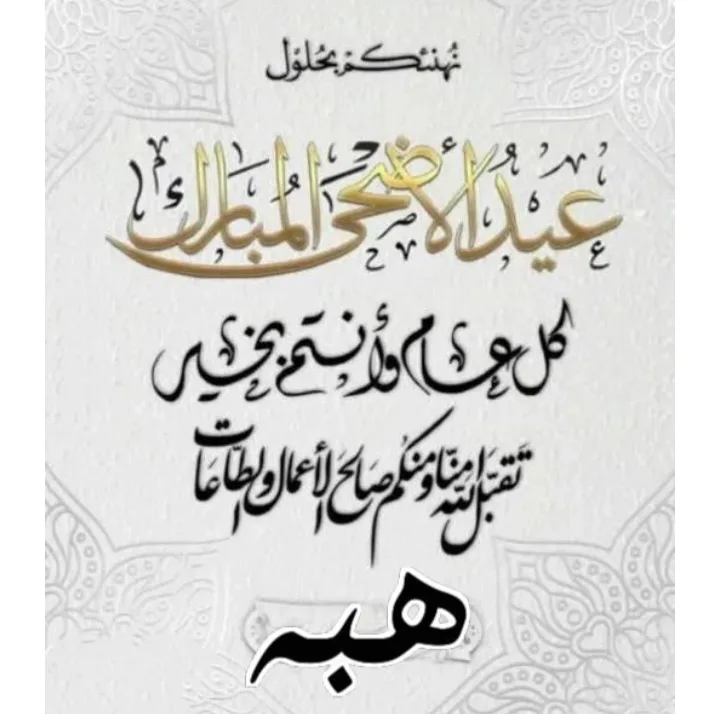 نهنئكم بحلول
عيد الأضحى المبارك
كل عام وأنتم بخير
تقبل الله منا ومنكم صالح الأعمال والطاعات
هبه